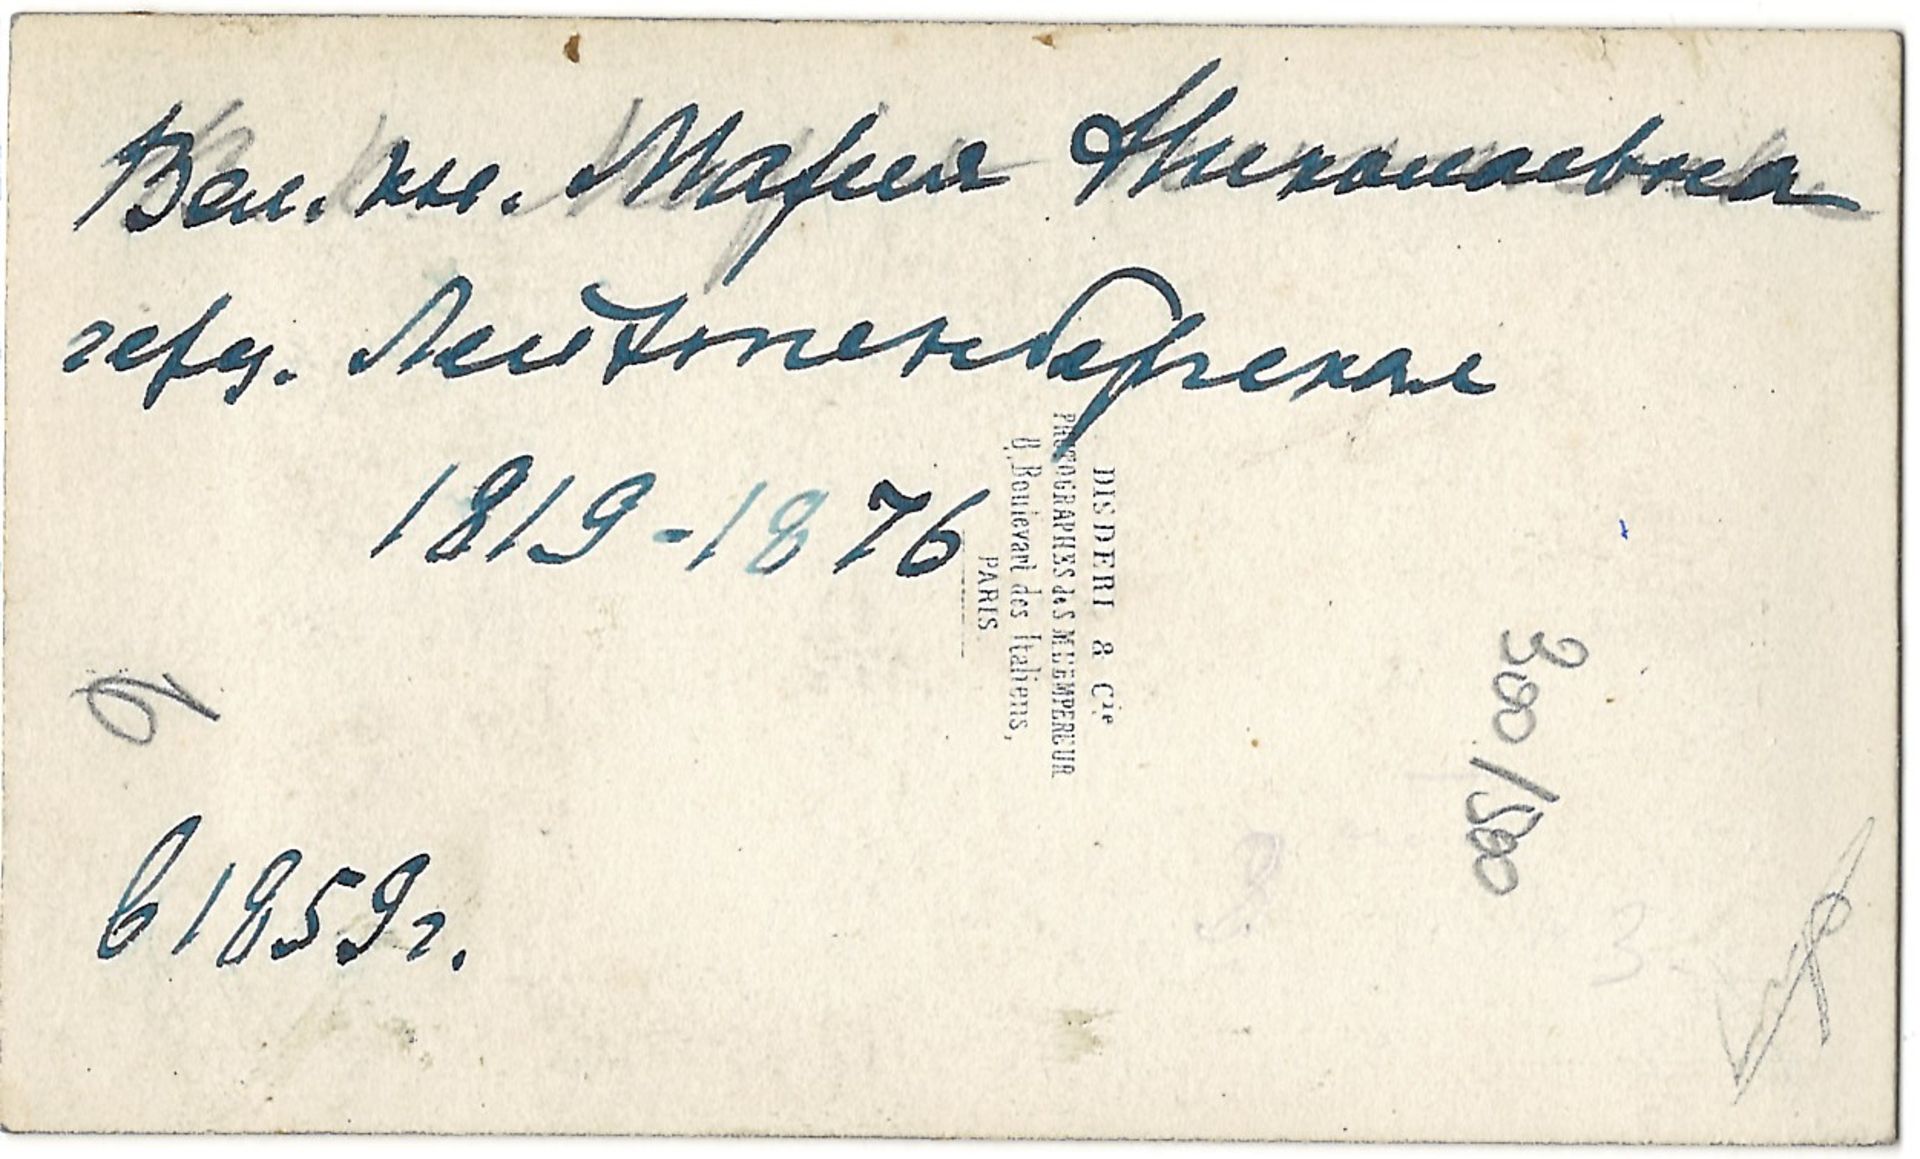 Вел. кн. Мария Николаевна
герц. Лейхтенбергская
1819-1876
DISDERI & Cie
PHOTOGRAPHES de S.M. L'EMPEREUR
8, Boulevart des Italiens,
PARIS.
300/500
6
в 1859 г.